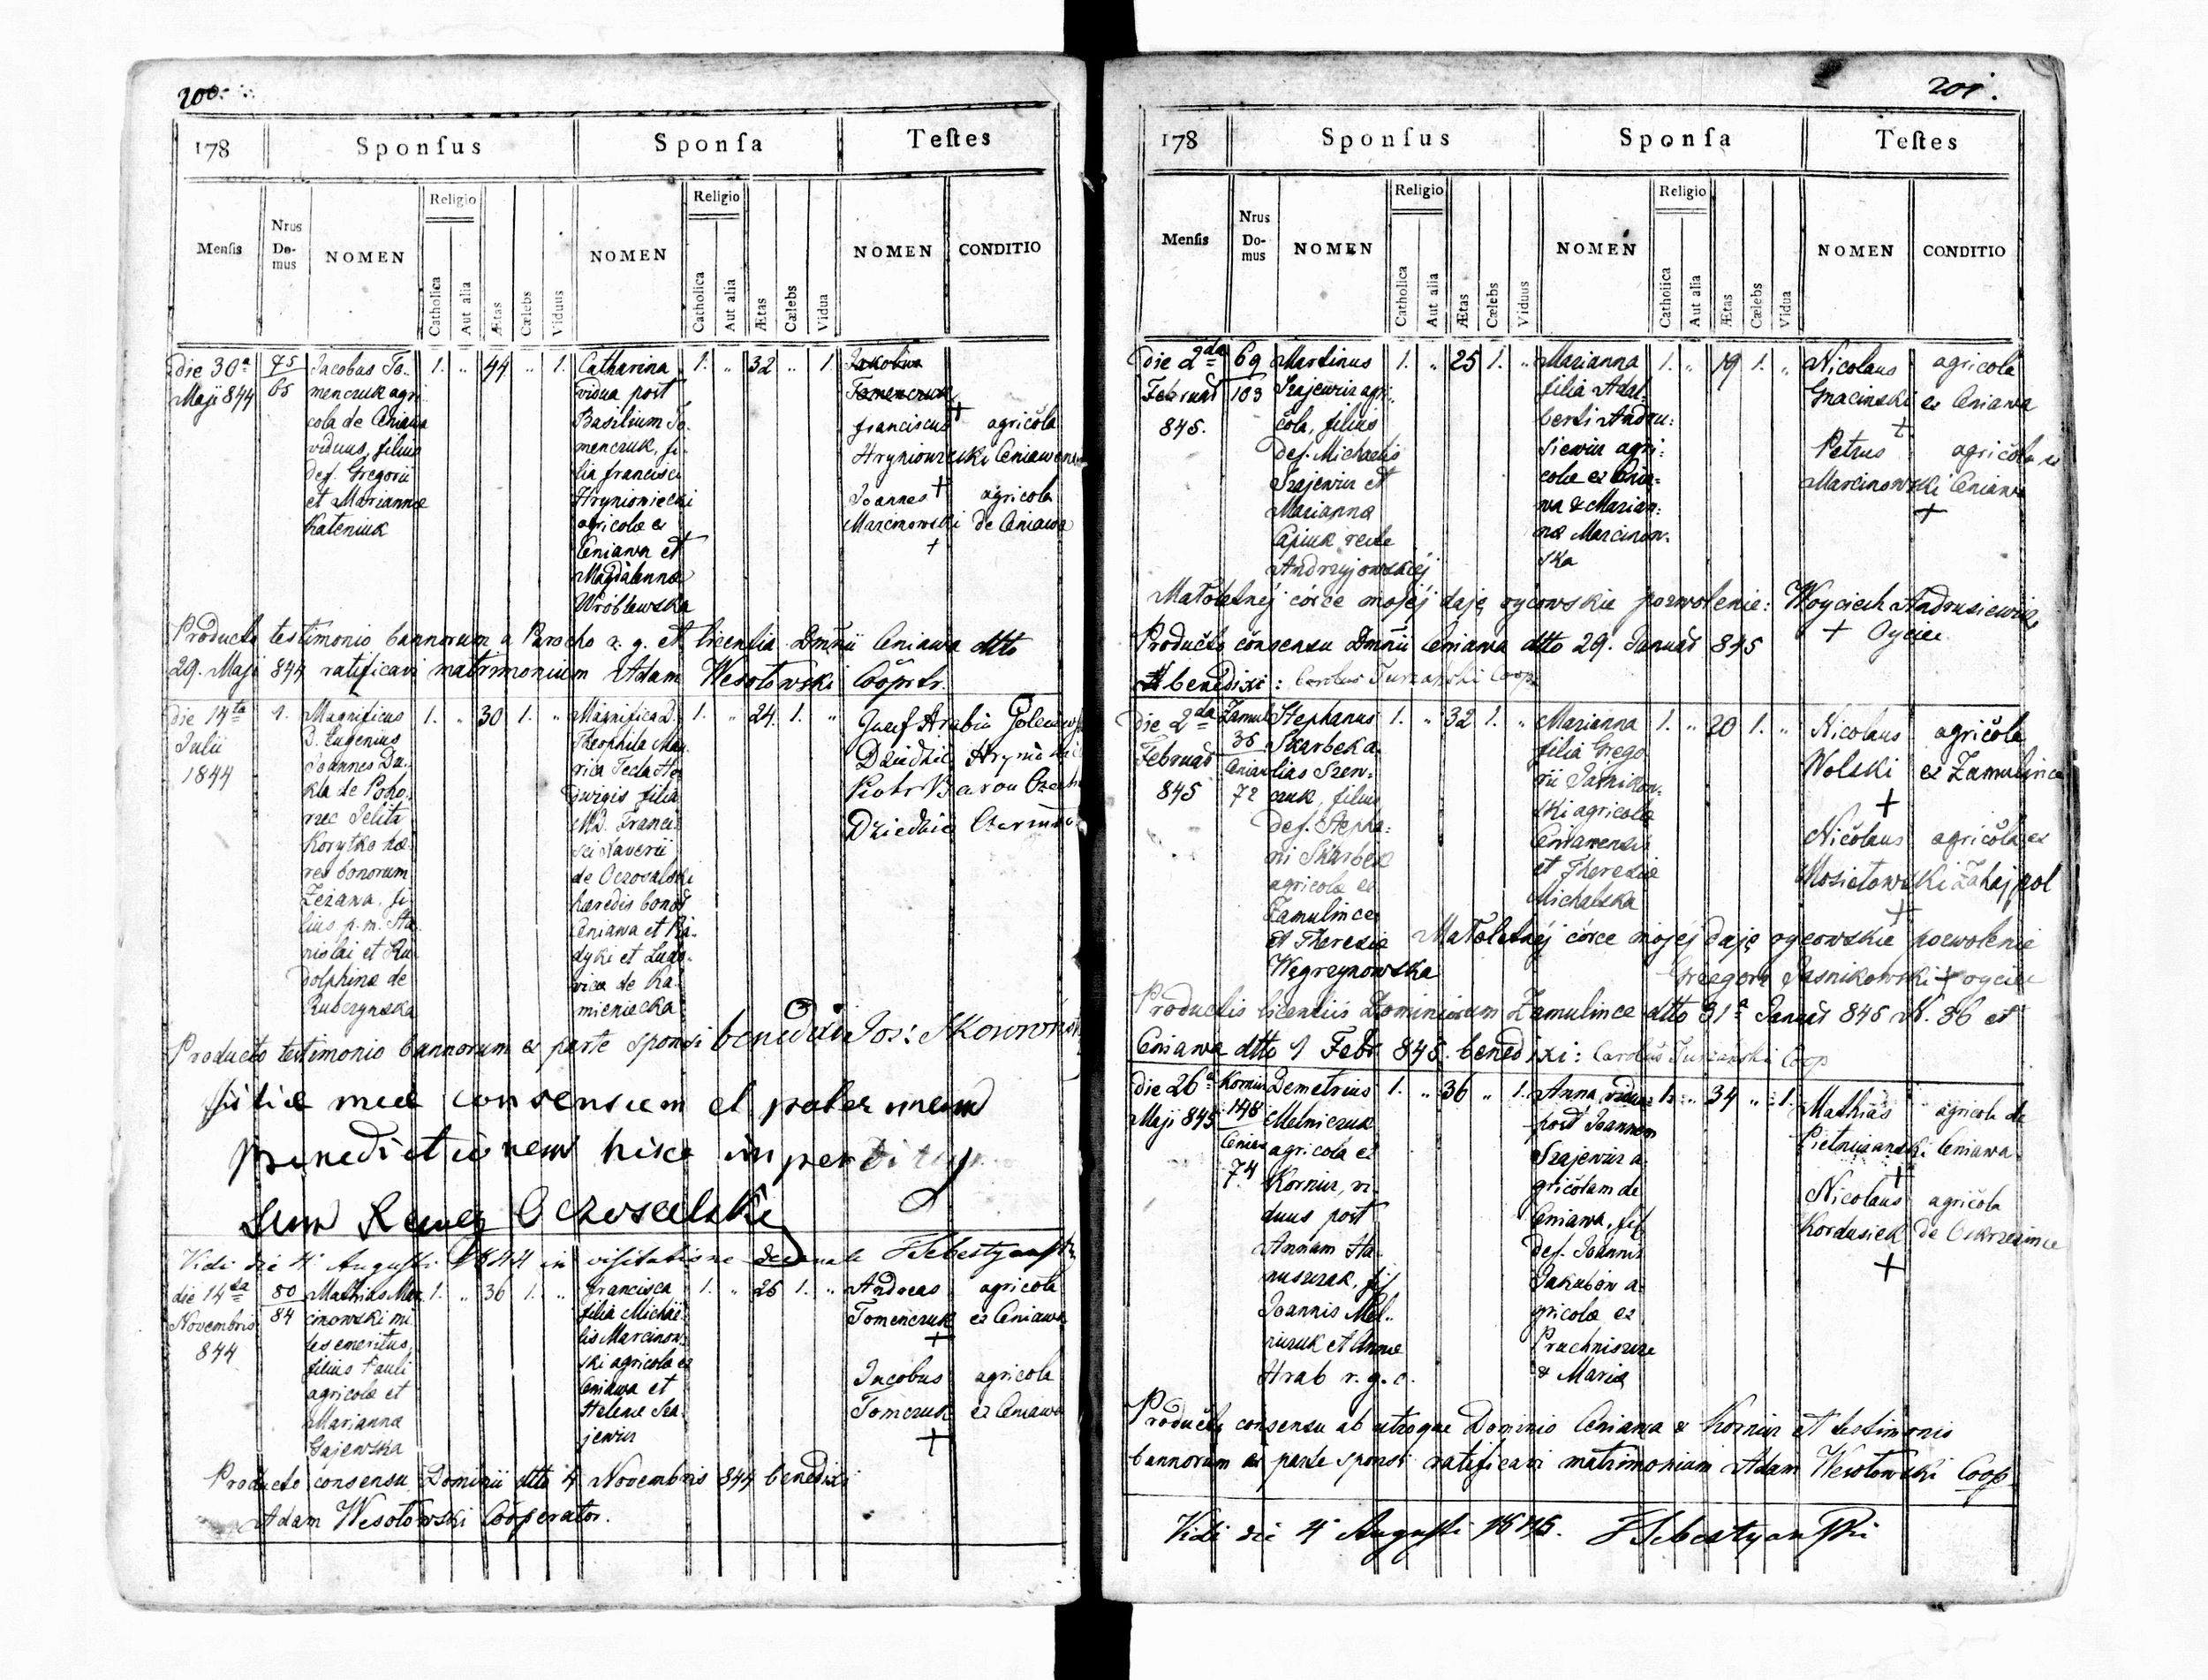 200.
178
Sponsus
Sponsa
Testes
Mensis
Nrus Do-mus
NOMEN
Religio
Catholica
Aut alia
Ætas
Cælebs
Viduus
NOMEN
Religio
Catholica
Aut alia
Ætas
Cælebs
Vidua
NOMEN
CONDITIO
die 30a
Maji 844
45
65
Jacobus To-
menczuk agri
cola de Ceniawa
viduus, filius
def. Gregorii
et Mariannæ
Kateniuk
1. " 44 " 1.
Catharina
vidua post
Basilium To-
menczuk, fi-
lia francisci
Hryniowiecki
agricolæ ex
Ceniawa et
Magdalennæ
Wróblewska
1. " 32 " 1.
Jakobus
Tomenczuk
franciscus + agricola
Hryniowiecki Ceniawensis
Joannes + agricola
Marcinowski de Ceniawa
+
Producto testimonio bannorum a Parocho r. g. et licentia Dmnii Ceniawa dtto
29. Maji 844 ratificavi matrimonium Adam Wesołowski Cooprtr.
die 14ta
Julii
1844
1.
Magnificus
D. Eugenius
Joannes Du-
kla de Poho-
rzec Jelita
Korytko hæ-
res bonorum
Żeżawa, fi-
lius p. m. Sta-
nislai et Ru-
dolphinæ de
Rubczynska
1. " 30 1. "
Magnifica D.
Theophila Mau-
rica Tecla He-
dwigis filia
M.D. Franci-
sci Xaverii
de Oczosalski
hæredis bonor
Ceniawa et Ra-
dyki et Ludo-
vicæ de Ka-
mieniecka
1. " 24 1. "
Józef Hrabia
Dziedzic
Piotr Baron
Dziedzic
Producto testimonio bannorum ex parte sponsi benedixi Jos: Skowroński
filiæ meæ consensum et paternam
benedictionem hisce
Oczosalski
Vidi die 4 Augusti 1844 in visitatione decanale
die 14ta
Novembris
844
80
84
Mathias Mar-
cinowski mi-
les emeritus,
filius Pauli
agricolæ et
Marianna
Gajewska
1. " 36 1. "
francisca
filia Michae-
lis Marcinow-
ski agricolæ ex
Ceniawa et
Helenæ Sza-
jewicz
1. " 26 1. "
Andreas agricola
Tomenczuk ex Ceniawa
+
Jacobus agricola
Tomczuk ex Ceniawa
+
Producto consensu Dominii dtto 4 Novembris 844 benedixi
Adam Wesołowski Cooperator.
201.
178
Sponsus
Sponsa
Testes
Mensis
Nrus Do-mus
NOMEN
Religio
Catholica
Aut alia
Ætas
Cælebs
Viduus
NOMEN
Religio
Catholica
Aut alia
Ætas
Cælebs
Vidua
NOMEN
CONDITIO
die 2da
Februar
845.
69
103
Martinus
Szajewicz agri-
cola, filius
def. Michaelis
Szajewicz et
Marianna
Capiuk recte
Andrzyjowskiéj
1. " 25 1. "
Marianna
filia Adal-
berti Andru-
siewicz agri-
colæ ex Cenia-
wa & Marian-
næ Marcinow-
ska
1. " 19 1. "
Nicolaus agricola
Gnacinski ex Ceniawa
+
Petrus agricola ex
Marcinowski Ceniawa
+
Małoletnéj córce mojéj daję oycowskie pozwolenie: Woyciech Andrusiewicz
+ Oyciec
Producto consensu Dmnii Ceniawa dtto 29. Januar 845
benedixi: Carolus Turzański Coop.
die 2da
Februar
845
Zamul
36
Ceniaw
72
Stephanus
Skarbek a-
lias Szew-
czuk, filius
def. Stepha-
ni Skarbek
agricolæ ex
Zamulince
et Theresiæ
Węgrzynowska
1. " 32 1. "
Marianna
filia Grego
rii Jasnikow-
ski agricolæ
Ceniawensis
et Theresiæ
Michalska
1. " 20 1. "
Nicolaus agricola
Wolski ex Zamulince
+
Nicolaus agricola ex
Mosietowski Zahajpol
+
Małoletnéj córce mojéj daję oycowskie pozwolenie
Grzegorz Jasnikowski + oyciec
Productis licentiis Dominiorum Zamulince dtto 31a Januar 845 N. 36 et
Ceniawa dtto 1 Febr 845. benedixi: Carolus Turzański Coop
die 26a
Maji 845
Kornicz
148
Ceniaw
74
Demetrius
Melniczuk
agricola ex
Kornicz, vi-
duus post
Annam Ha-
nuszczak, fil
Joannis Mel-
niczuk et Annæ
Hrab r. g. c.
1. " 36 " 1.
Anna vidua
post Joannem
Szajewicz a-
gricolam de
Ceniawa, fil
def. Joannis
Jakubów a-
gricolæ ex
Pruchniszcze
& Maria
1. " 34 " 1.
Mathias agricola de
Pietruianski Ceniawa
+
Nicolaus agricola
Kordasiek de Oskrzesince
+
Producto consensu ab utroque Dominio Ceniawa & Kornicz et testimonio
bannorum ex parte sponsi ratificavi matrimonium Adam Wesołowski Coop.
Vidi die 4 Augusti 1845.